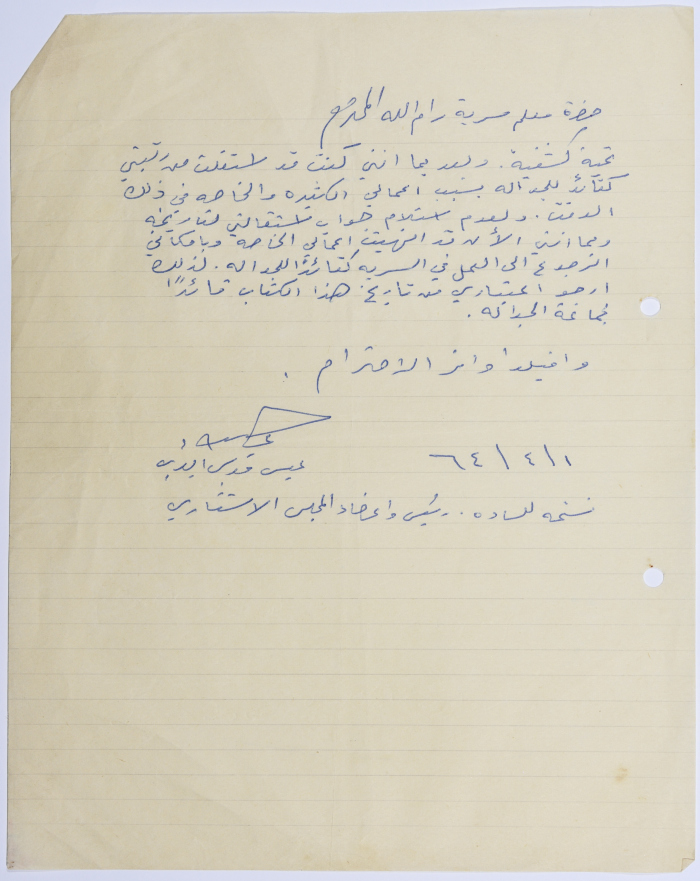 حضرة معلم سرية رام الله المحترم
تحية كشفية. وبعد بما انني كنت قد استقلت من رتبتي
كقائد للجواله بسبب اعمالي الكثيره والخاصه في ذلك
الوقت. ولعدم استلام جواب استقالتي لتاريخه
وبما انني الأن قد انهيت اعمالي الخاصه وبامكاني
الرجوع الى العمل في السريه كقائدًا للجواله. لذلك
ارجو اعتباري من تاريخ هذا الكتاب قائدًا
لجماعة الجواله.
واقبلوا وافر الاحترام.
٦٤/٤/١
عيسى قدس
نسخه للساده. رئيس واعضاء المجلس الاستشاري